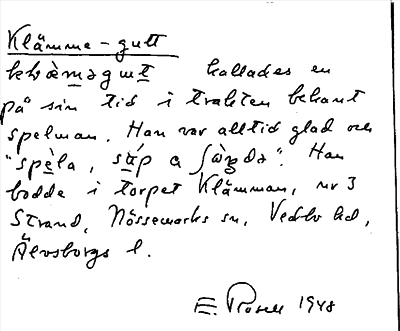 Klämme-gutt
kallades en
på sin tid i trakten bekant
spelman. Han var alltid glad och
"spèla, Han
bodde i torpet Klämman, nr 3
Strand, Nössemarks sn, Vedbo hd,
Älvsborgs l.
E. Rosell 1948